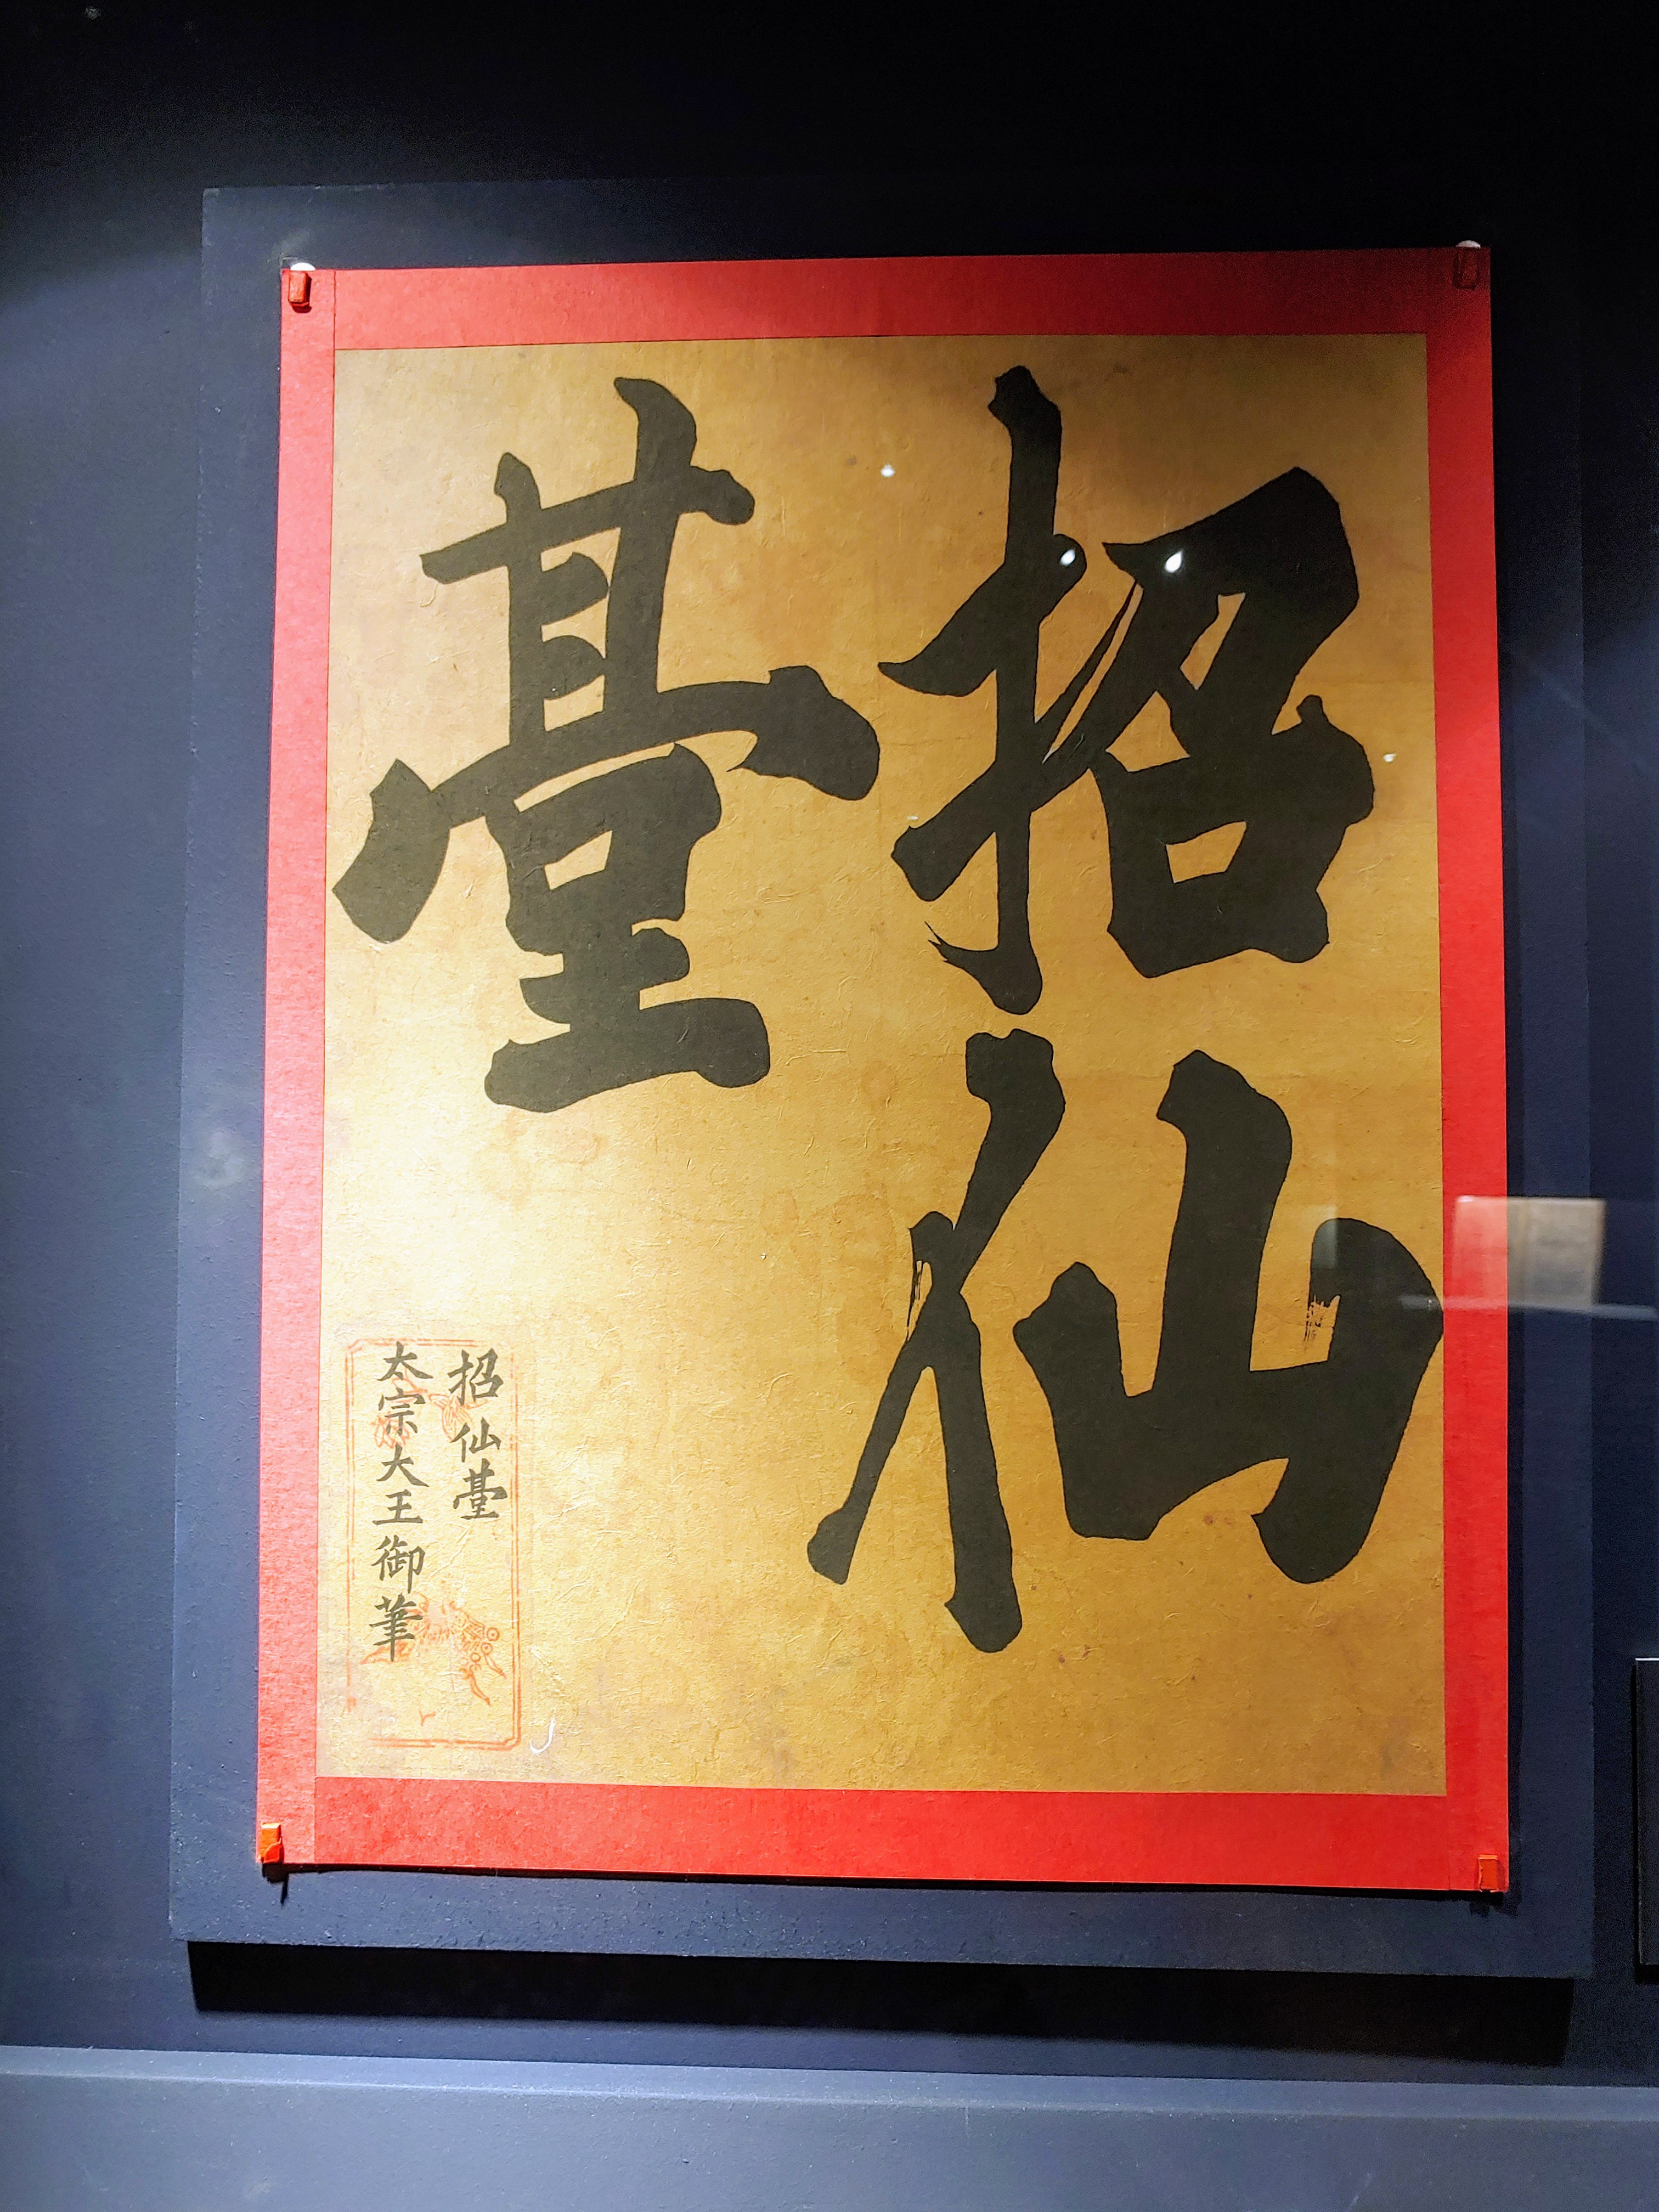 招仙
臺
招仙臺
太宗大王御筆